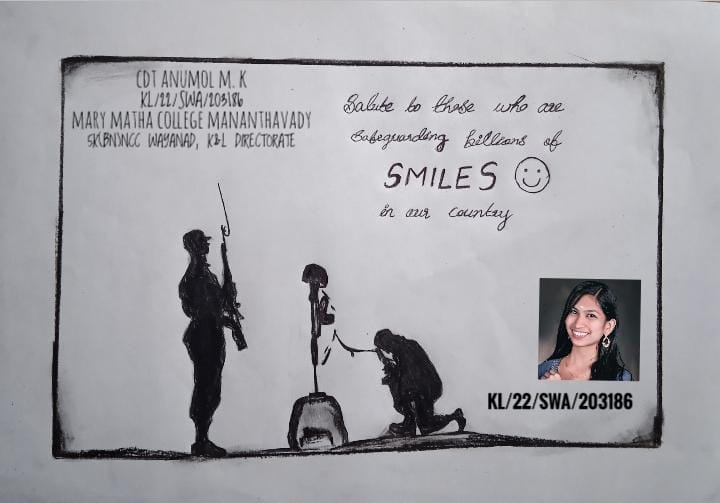 CDT ANUMOL M. K
KL/22/SWA/203186
MARY MATHA COLLEGE MANANTHAVADY
5K(BN)NCC WAYANAD, K&L DIRECTORATE
Salute to those who are
safeguarding billions of
SMILES
in our country
KL/22/SWA/203186